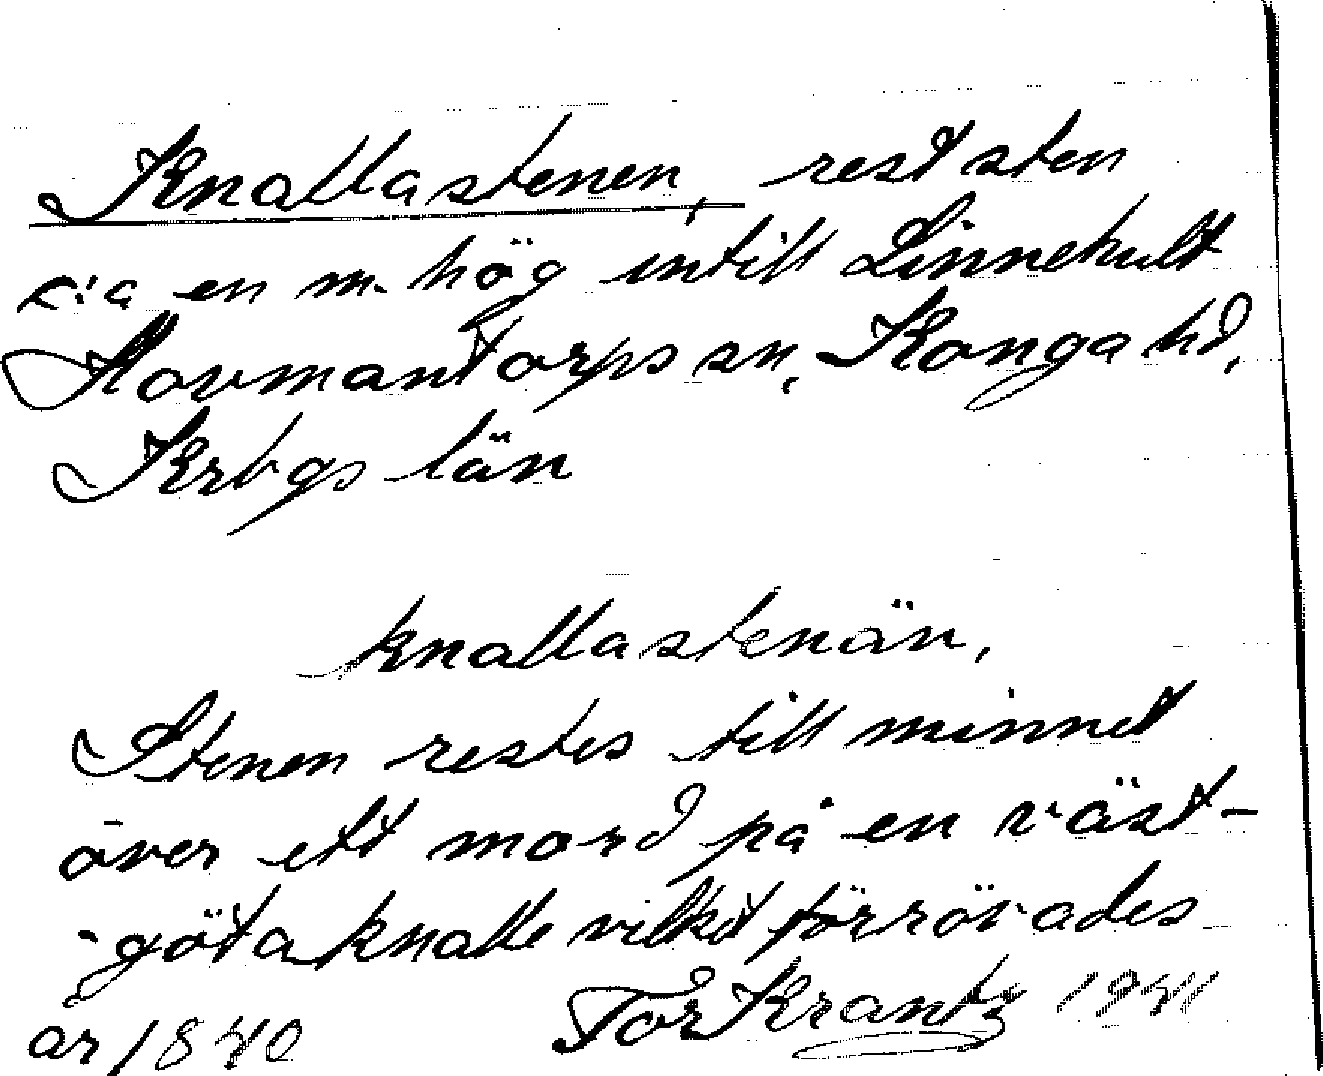 Knallastenen, rest sten
c:a en m. hög intill Linnehult
Hovmantorps sn, Konga hd,
Krbgs län
knallastenän,
Stenen restes till minnet
över ett mord på en väst-
-göta knalle vilket förrövades
år 1840 Tor Krantz 1941